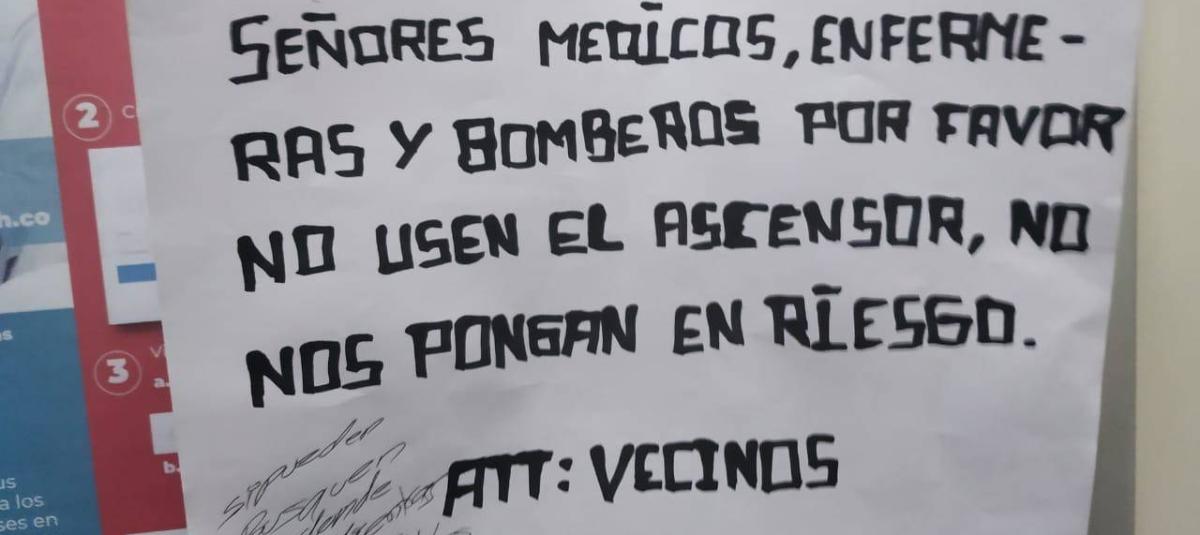 SEÑORES MEDICOS, ENFERME-
RAS Y BOMBEROS POR FAVOR
NO USEN EL ASCENSOR, NO
NOS PONGAN EN RIESGO.
ATT: VECINOS
si pueden
Busquen
donde
2
C
h.co
3
Vi
a.
b.
as
us
a los
ses en